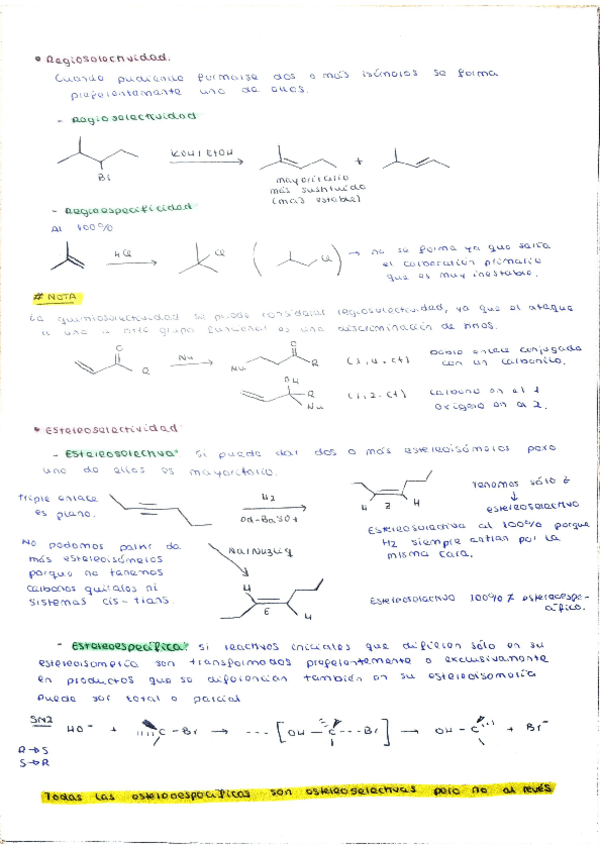 • Regioselectividad.
Cuando pudiendo formarse dos o más isómeros se forma
preferentemente uno de ellos.
- Regioselectividad
KOH / EtOH
+
Br
mayoritario
más sustituido
(más estable)
- Regioespecificidad
Al 100%
HCl
Cl
Cl
→ no se forma ya que sería
el carbocatión primario
que es muy inestable.
# NOTA
La quimioselectividad se puede considerar regioselectividad, ya que el ataque
a uno u otro grupo funcional es una discriminación de
O
R
Nu
O
Nu
R
(1,4. ct)
Doble enlace conjugado
con un carbonilo.
OH
R
Nu
(1,2. ct)
Carbono en el 1
oxígeno en el 2.
• Estereoselectividad
- Estereoselectiva: Si puede dar dos o más estereoisómeros pero
uno de ellos es mayoritario.
triple enlace
es plano.
H2
Pd-BaSO4
H Z H
Tenemos sólo
estereoselectivo
Estereoselectiva al 100% porque
H2 siempre entran por la
misma cara.
No podemos partir de
más estereoisómeros
porque no tenemos
carbonos quirales ni
sistemas cis-trans.
Na/NH3 liq
H
E
H
Estereoselectivo 100% ≠ estereoespe-
cífico.
- Estereoespecífica: si reactivos iniciales que difieren sólo en su
estereoisomería son transformados preferentemente o exclusivamente
en productos que se diferencian también en su estereoisomería
Puede ser total o parcial
SN2
HO⁻ + C - Br → --- [OH --- C --- Br] → OH - C + Br⁻
R→S
S→R
Todas las estereoespecíficas son estereoselectivas pero no al revés